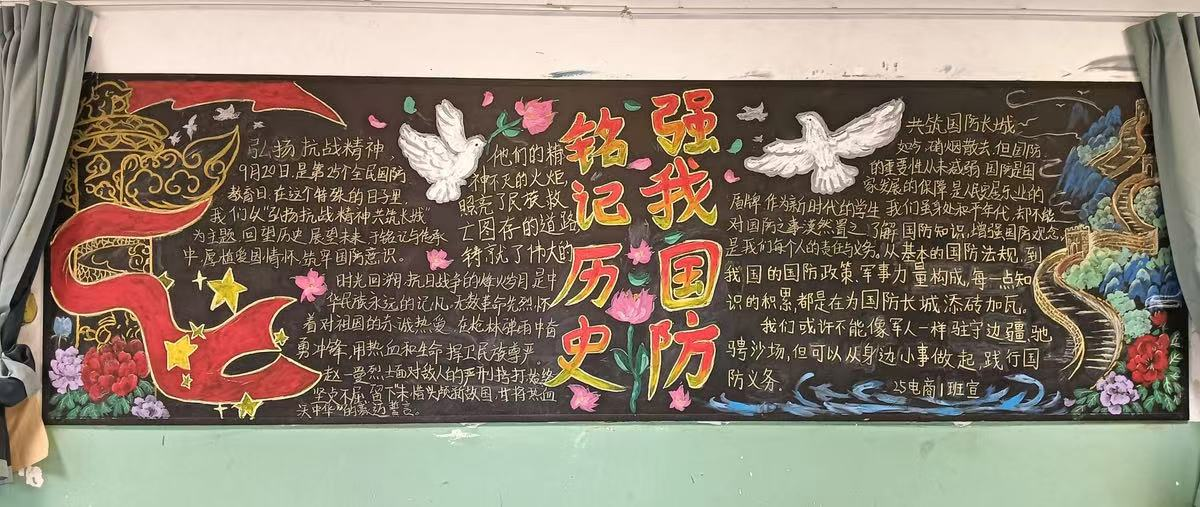 弘扬抗战精神,
9月20日,是第25个全民国防
教育日.在这个特殊的日子里,
我们以"弘扬抗战精神 共筑长城"
为主题,回望历史,展望未来,于铭记与传承
中,厚植爱国情怀,筑牢国防意识。
时光回溯,抗日战争的烽火岁月,是中
华民族永远的记忆,无数革命先烈,怀
着对祖国的赤诚热爱,在枪林弹雨中奋
勇冲锋,用热血和生命 捍卫民族尊严
赵一曼烈士面对敌人的严刑拷打,始终
坚贞不屈,留下"未惜头颅新故国,甘将热血
沃中华"的豪迈誓言。
他们的精
神不灭的火炬
照亮了民族救
亡图存的道路,
铸就了伟大的
铭记历史
强我国防
共筑国防长城
如今,硝烟散去,但国防
的重要性从未减弱,国防是国
家发展的保障,是人民安居乐业的
盾牌,作为新时代的学生,我们虽身处和平年代,却不能
对国防之事漠然置之,了解国防知识,增强国防观念,
是我们每个人的责任与义务。从基本的国防法规,到
我国的国防政策、军事力量构成,每一点知
识的积累,都是在为国防长城添砖加瓦。
我们或许不能像军人一样驻守边疆,驰
骋沙场,但可以从身边小事做起,践行国
防义务。
25电商1班宣